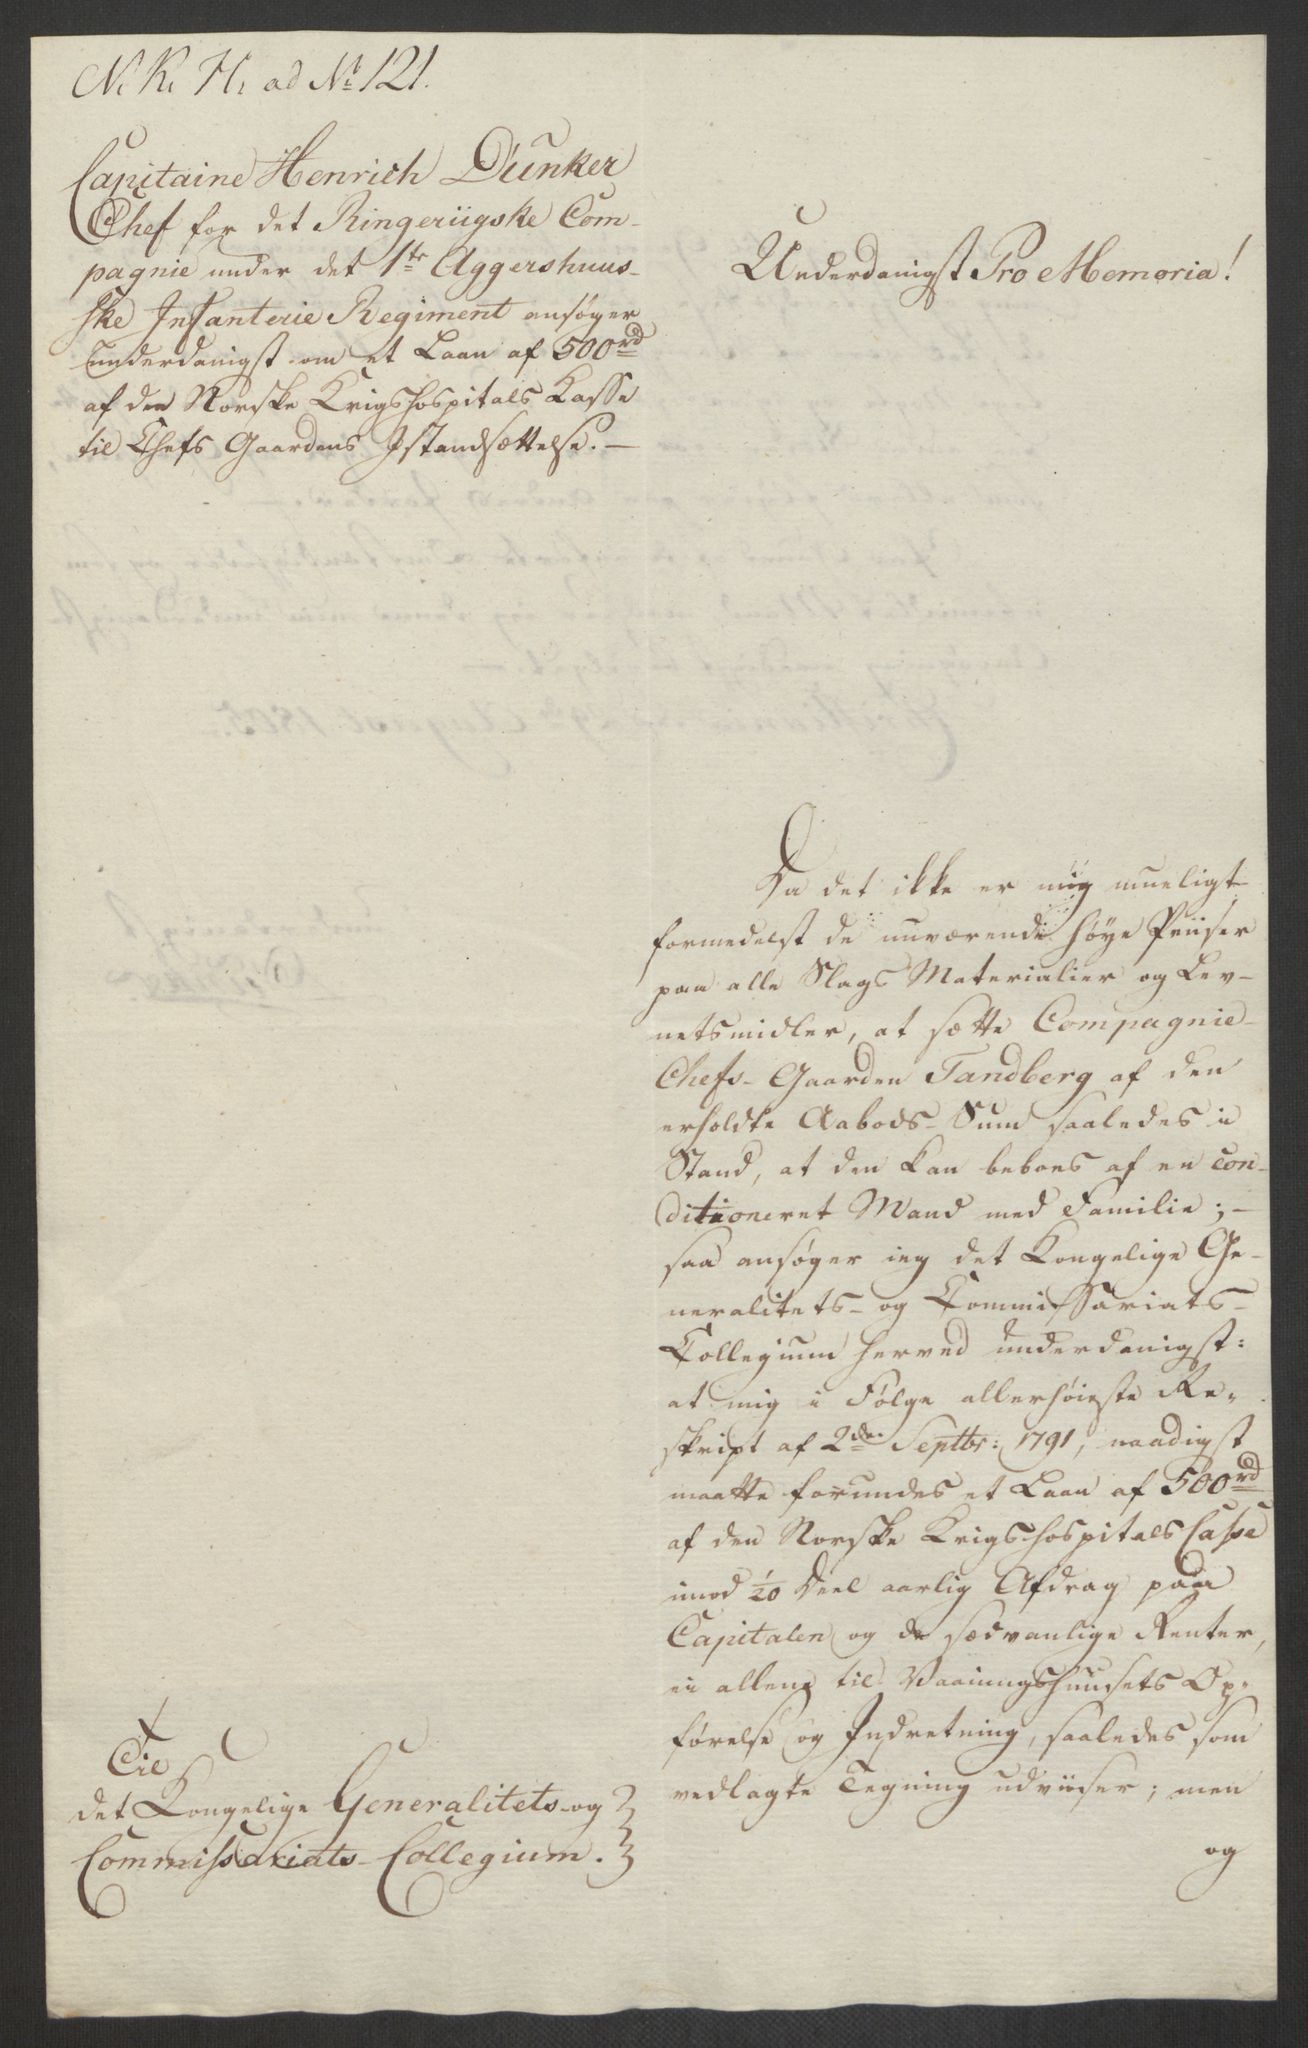 N. K. H. ad No 121.
Capitaine Henrich Dunker
Chef for det Ringeriigske Com-
pagnie under det 1te Aggershuus-
ske Infanterie Regiment ansøger
underdanigst om et Laan af 500rd
af den Norske Krigshospitals Kasse
til Chefs Gaardens Istandsættelse. —
Underdanigst Pro Memoria!
Da det ikke er mig mueligt
formedelst de nuværende høye Priiser
paa alle Slags Materialier og Lev-
netsmidler, at sætte Compagnie-
Chefs-Gaarden Tandberg af den
erholdte Aabods-Sum saaledes i
Stand, at den kan beboes af en con-
ditioneret Mand med Familie; —
saa ansøger ieg det Kongelige Ge-
neralitets- og Commissariats-
Collegium herved underdanigst:
at mig i Følge allerhøieste Re-
skript af 2de Septbr: 1791, naadigst
maatte forundes et Laan af 500rd
af den Norske Krigshospitals Casse
imod 1/20 Deel aarlig Afdrag paa
Capitalen og de sædvanlige Renter,
ei allene til Vaaningshuusets Op-
førelse og Indretning, saaledes som
vedlagte Tegning udviiser; men
og
Til
det Kongelige Generalitets- og
Commissariats-Collegium.